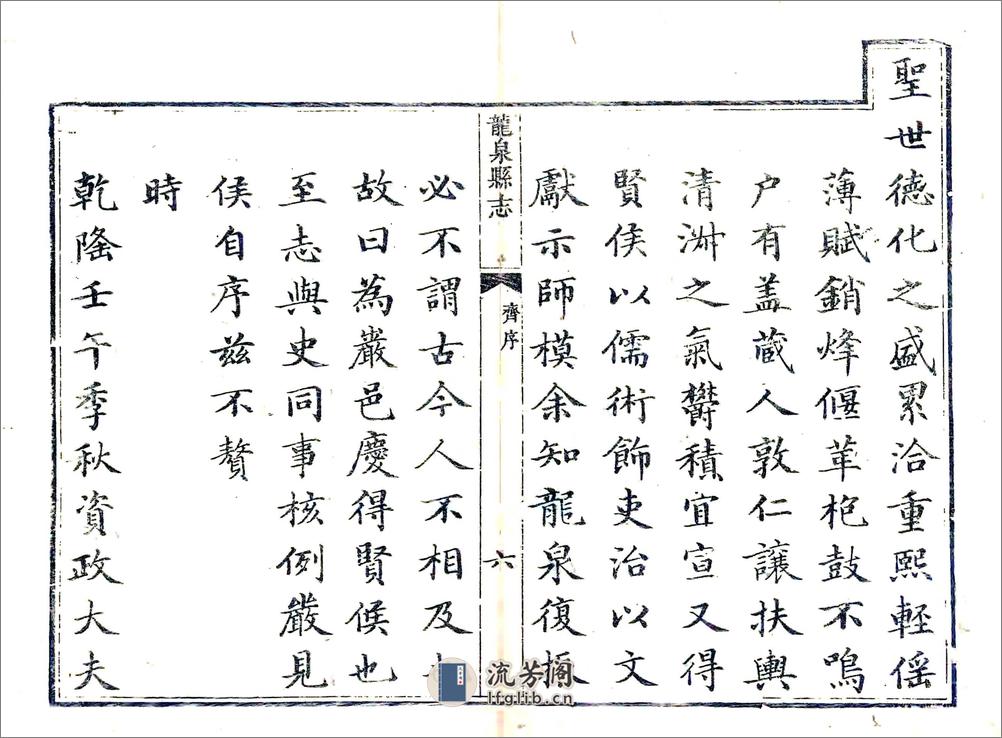 聖世德化之盛累洽重熙輕徭
薄賦銷烽偃革枹鼓不鳴
户有盖藏人敦仁讓扶輿
清淑之氣欝積宜宣又得
賢侯以儒術飾吏治以文
獻示師模余知龍泉復振
龍泉縣志
齊序
六
必不謂古今人不相及
故曰為巖邑慶得賢候也
至志與史同事核例嚴見
侯自序兹不贅
時
乾隆壬午季秋資政大夫
流芳阁
lfglib.com